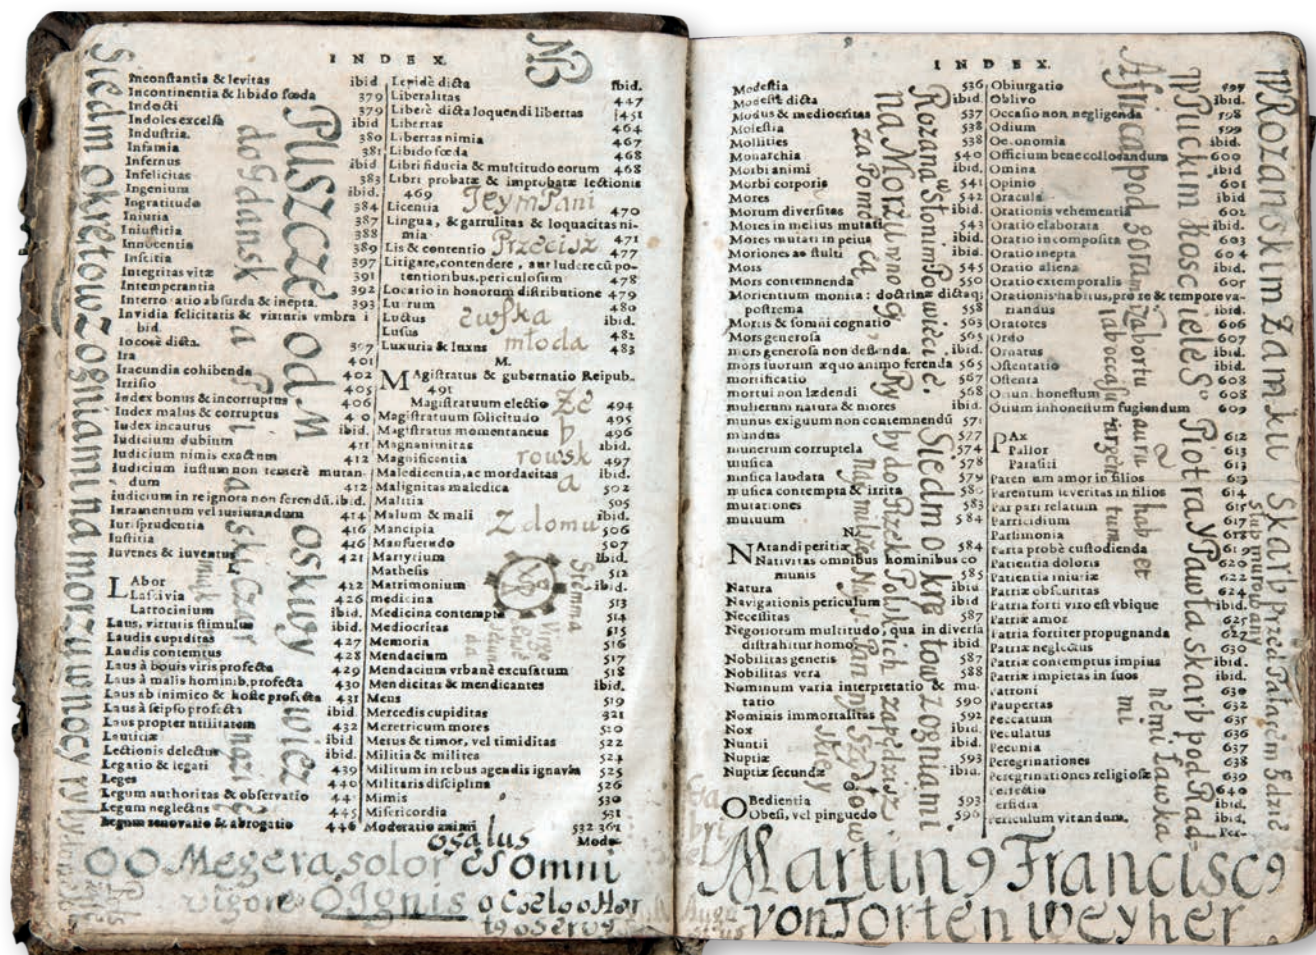 INDEX.
Inconstantia & levitas ibid
Incontinentia & libido fœda 379
Indocti 379
Indoles excelsa ibid
Industria. 380
Infamia 381
Infernus ibid
Infelicitas 383
Ingenium ibid.
Ingratitudo 384
Iniuria 387
Iniustitia 388
Innocentia 389
Inscitia 397
Integritas vitæ 391
Intemperantia 392
Interro atio absurda & inepta. 393
Invidia felicitatis & virtutis vmbra i
bid.
Iocosè dicta. 397
Ira 401
Iracundia cohibenda 402
Irrisio 405
Iudex bonus & incorruptus 406
Iudex malus & corruptus
Iudex incautus ibid.
Iudicium dubium 411
Iudicium nimis exactum 412
Iudicium iustum non temerè mutan-
dum 412
iudicium in re ignota non ferendū. ibid.
Iuramentum vel iusiurandum 414
Iurisprudentia 416
Iustitia 416
Iuvenes & iuventus 421
LAbor 422
Lascivia 426
Latrocinium ibid.
Laus, virtutis stimulus ibid.
Laudis cupiditas 427
Laudis contemtus 428
Laus à bonis viris profecta 429
Laus à malis hominib. profecta 430
Laus ab inimico & hoste profecta 431
Laus à seipso profecta ibid
Laus propter utilitatem 432
Lautitiæ ibid
Lectionis delectus ibid.
Legatio & legati 439
Leges 440
Legum authoritas & observatio
Legum neglectus 445
Legum renovatio & abrogatio 446
Lepidè dicta ibid.
Liberalitas 447
Liberè dicta loquendi libertas 451
Libertas 464
Libertas nimia 467
Libido fœda 468
Libri fiducia & multitudo eorum 468
Libri probatæ & improbatæ lectionis
469
Licentia 470
Lingua, & garrulitas & loquacitas ni-
mia 471
Lis & contentio 477
Litigare, contendere, aut ludere cū po-
tentioribus, periculosum 478
Locatio in honorum distributione 479
Lucrum 480
Luctus ibid.
Lusus 482
Luxuria & luxus 483
M.
MAgistratus & gubernatio Reipub.
491
Magistratuum electio 494
Magistratuum solicitudo 495
Magistratus momentaneus 496
Magnanimitas ibid.
Magnificentia 497
Maledicentia, ac mordacitas ibid.
Malignitas maledica 502
Malitia 505
Malum & mali ibid.
Mancipia 506
Mansuetudo 507
Martyrium ibid.
Mathesis 512
Matrimonium ibid.
medicina 513
Medicina contempta 514
Mediocritas 515
Memoria 516
Mendacium 517
Mendacium vrbanè excusatum 518
Mendicitas & mendicantes ibid.
Mens 519
Mercedis cupiditas 521
Meretricum mores 520
Metus & timor, vel timiditas 522
Militia & milites 524
Militum in rebus agendis ignavia 525
Militaris disciplina 526
Mimis 530
Misericordia 531
Moderatio animi 532 361
Mode-
NB
Siedm okrętow z ogniami na morzu wnocy
PUSZCZĘ od M oskwy
do Gdanska
Jeym Pani
Przecisz
zewska
młoda
b
rowsk
a
Z domu
Siemna
osalus
OO Megera, solor es omni
vigore O Ignis o Cœlo o Hor
INDEX.
Modestia 536
Modestè dicta ibid
Modus & mediocritas 537
Molestia 538
Mollities 538
Monarchia 540
Morbi animi ibid
Morbi corporis 541
Mores 542
Morum diversitas ibid.
Mores in melius mutati 543
Mores mutati in peius ibid.
Moriones ac stulti ibid.
Mors 545
Mors contemnenda 550
Morientium monita: doctrina dictaq;
postrema 558
Mortis & somni cognatio 563
Mors generosa 565
mors generosa non deflenda. ibid.
mors suorum æquo animo ferenda 565
mortificatio 567
mortui non lædendi 568
mulierum natura & mores ibid.
munus exiguum non contemnendū 571
mundus 577
munerum corruptela 574
musica 578
musica laudata 579
musica contempta & irrita
mutationes 583
mutuum 584
N.
NAtandi peritia 584
Nativitas omnibus hominibus co
munis 585
Natura ibid
Navigationis periculum ibid
Necessitas 587
Negotiorum multitudo, qua in diversa
distrahitur homo. ibid
Nobilitas generis 587
Nobilitas vera 588
Nominum varia interpretatio & mu-
tatio 590
Nominis immortalitas 592
Nox ibid.
Nuntii ibid.
Nuptiæ 593
Nuptiæ secundæ ibid.
OBedientia 593
Obesi, vel pinguedo 596
Obiurgatio
Oblivo ibid.
Occasio non negligenda 598
Odium 599
Oe onomia ibid.
Officium bene collocandum 600
Omina ibid
Opinio 601
Oracula ibid
Orationis vehementia 602
Oratio elaborata ibid.
Oratio incomposita 603
Oratio inepta 604
Oratio aliena ibid.
Oratio extemporalis 605
Orationis habitus, pro re & tempore va-
riandus ibid.
Oratores 606
Ordo 607
Ornatus ibid.
Ostentatio ibid.
Ostenta 608
Otium honestum 608
Otium inhonestum fugiendum 609
PAx 612
Pallor 613
Parasiti 613
Paten um amor in filios
Parentum severitas in filios 614
Par pari relatum 615
Parricidium 617
Parsimonia 618
Parta probè custodienda 619
Patientia doloris 620
Patientia iniuriæ 622
Patriæ obscuritas 624
Patria forti viro est vbique ibid.
Patriæ amor 625
Patria fortiter propugnanda 627
Patriæ neglectus 630
Patriæ contemptus impius ibid.
Patriæ impietas in suos ibid.
Patroni 630
Paupertas 632
Peccatum 635
Peculatus 636
Pecunia 637
Peregrinationes 638
Peregrinationes religiosæ 639
Perfectio 640
Perfidia ibid.
Periculum vitandum. ibid.
Per-
na Morzu wnocy
za Pomo cą
Siedm o krętow z ogniami
by do Rzek Polskich
Africa pod gorami
W Puckim Kosciele S. Piotra y Pawła skarb pod Ław-
nemi Ławka
mi
W Rozanskim Zamku Skarb przed Pałacem Gdzie
slub murowany
Martin9 Francisc9
von Torten Weyher